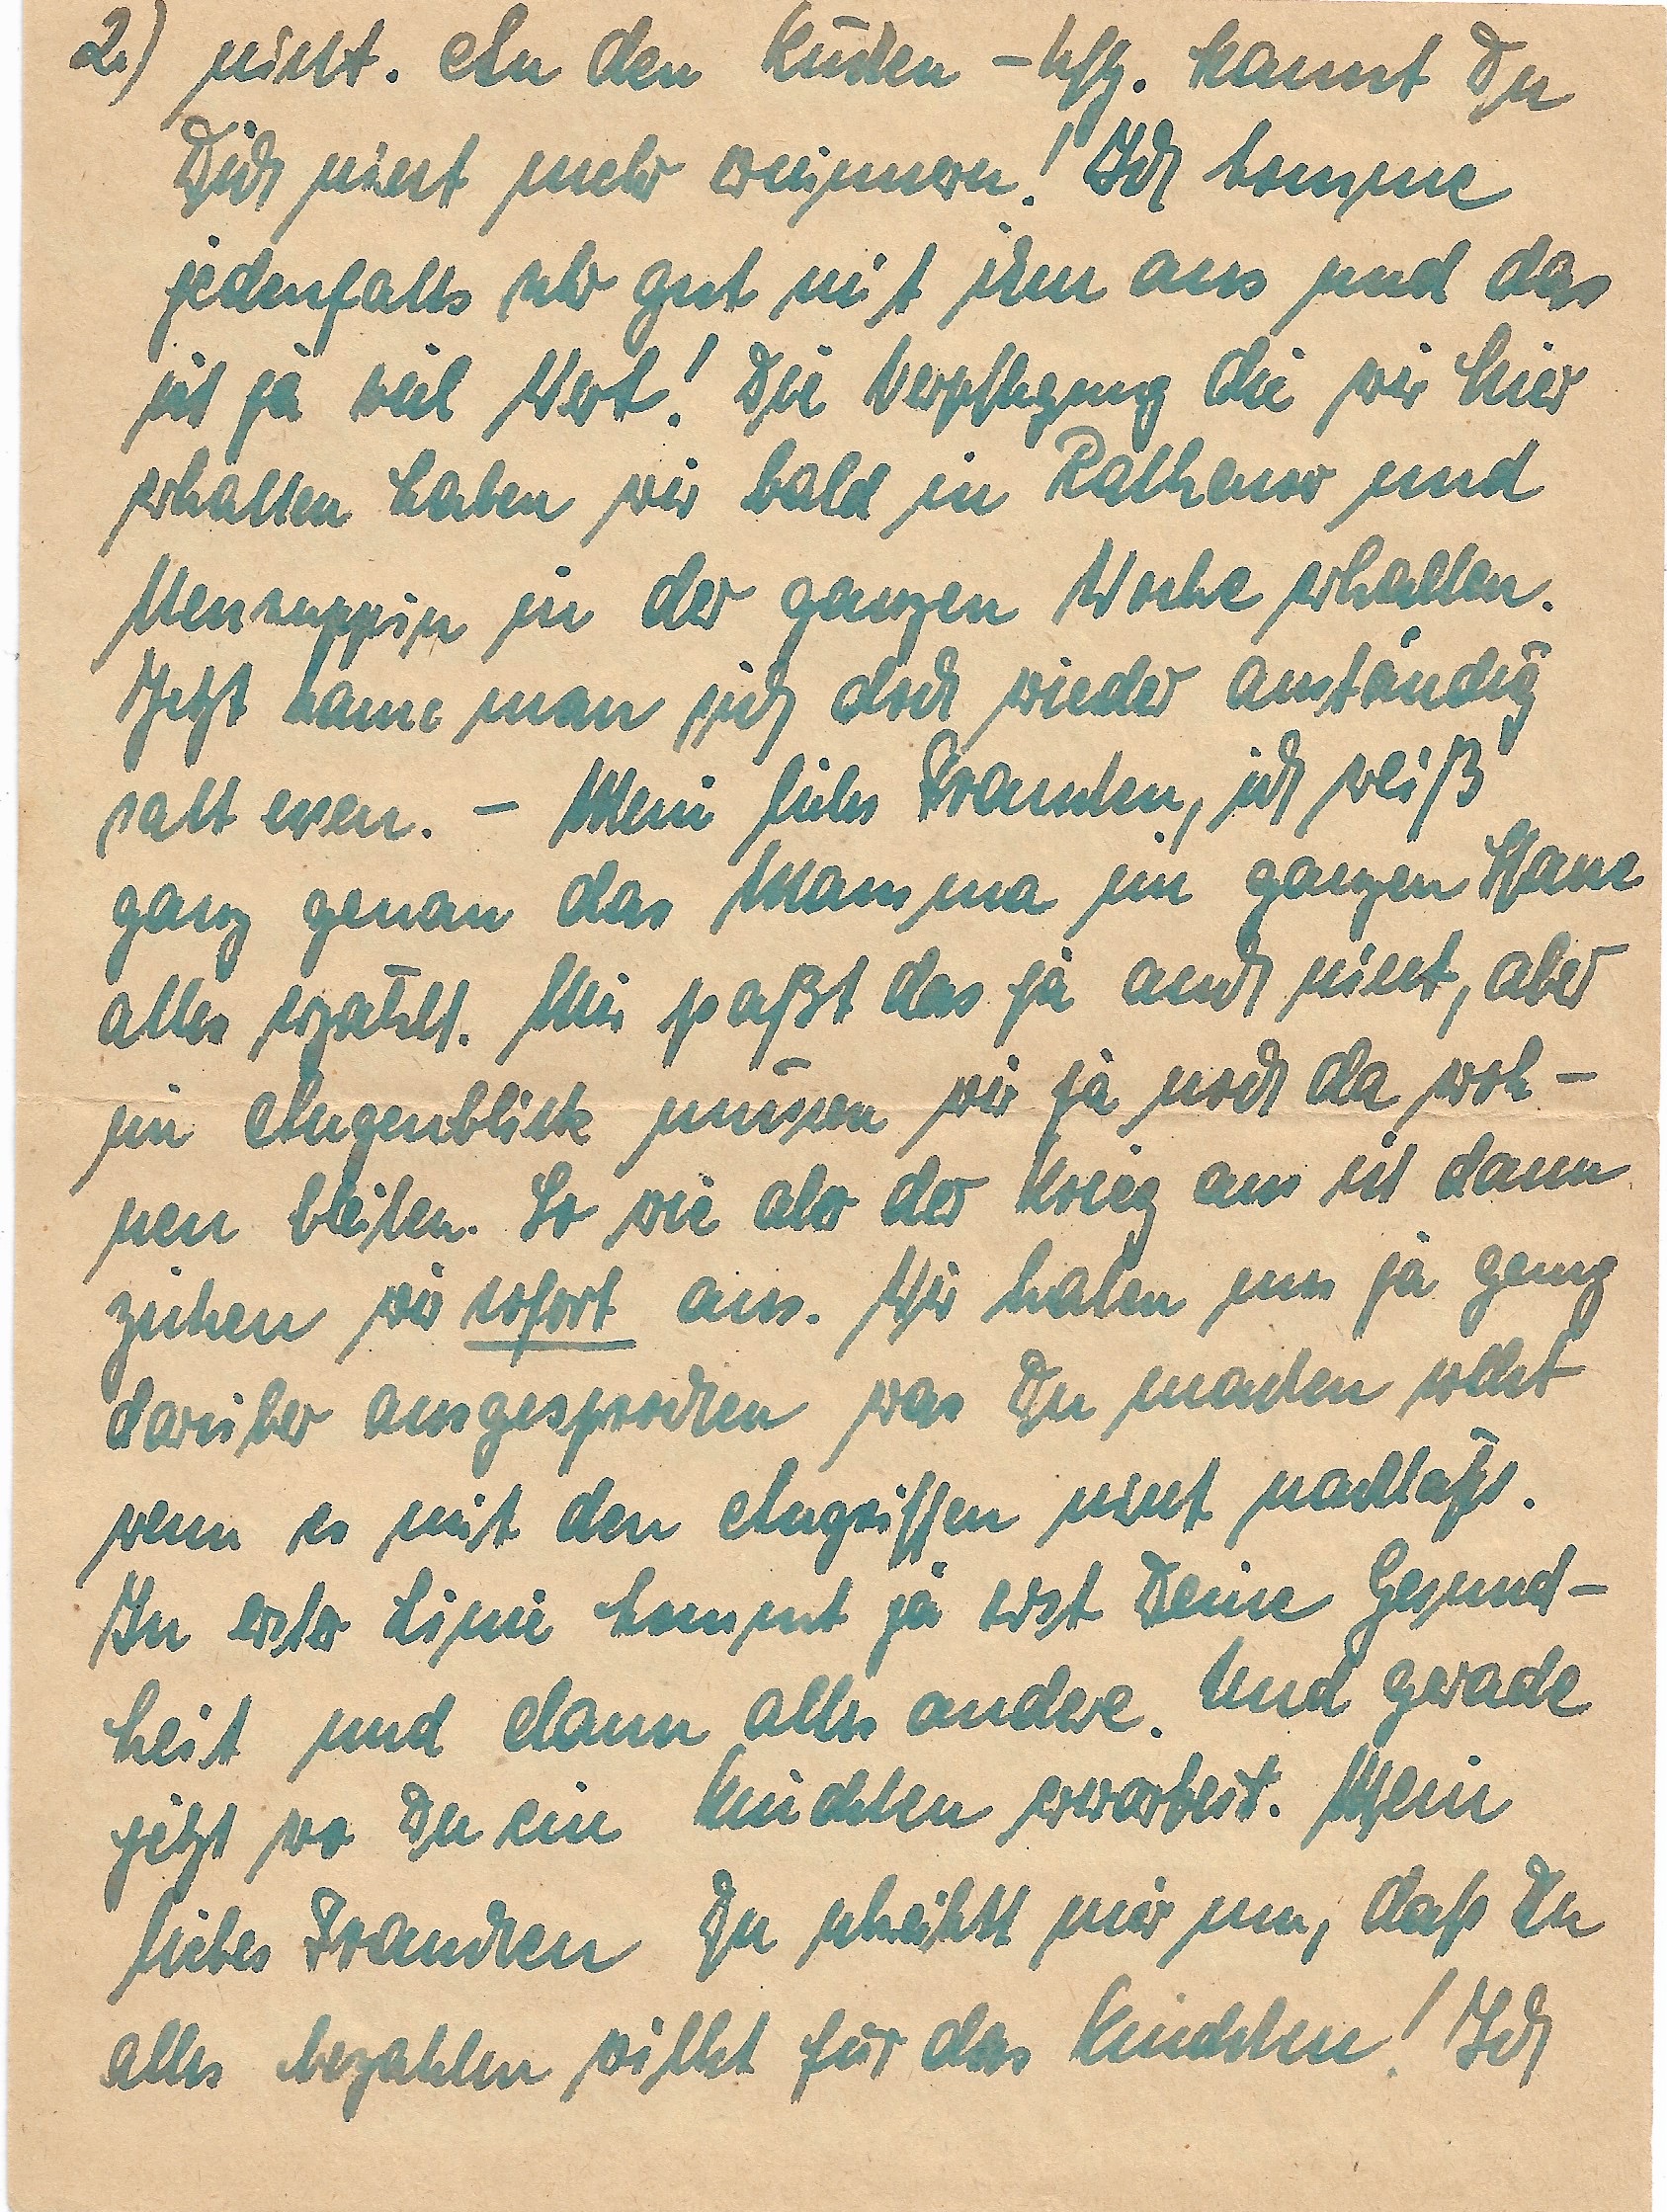 2.) nicht. An den Küchen-Uffz. kannst Du
Dich nicht mehr erinnern! Ich komme
jedenfalls sehr gut mit ihm aus und das
ist ja viel Wert! Die Verpflegung die wir hier
erhalten haben wir bald in Rathenow und
Neuruppin in der ganzen Woche erhalten.
Jetzt kann man sich doch wieder anständig
satt essen. – Mein liebes Frauchen, ich weiß
ganz genau das Mamma im ganzen Hause
alles erzählt. Mir paßt das ja auch nicht, aber
im Augenblick müssen wir ja noch da woh-
nen bleiben. So wie aber der Krieg aus ist dann
ziehen wir sofort aus. Wir haben uns ja genug
darüber ausgesprochen was Du machen sollst
wenn es mit den Angriffen nicht nachläßt.
In erster Linie kommt ja erst Deine Gesund-
heit und dann alles andere. Und gerade
jetzt wo Du ein Kindchen erwartest. Mein
liebes Frauchen Du schreibst mir nun, daß Du
alles bezahlen willst für das Kindchen! Ich